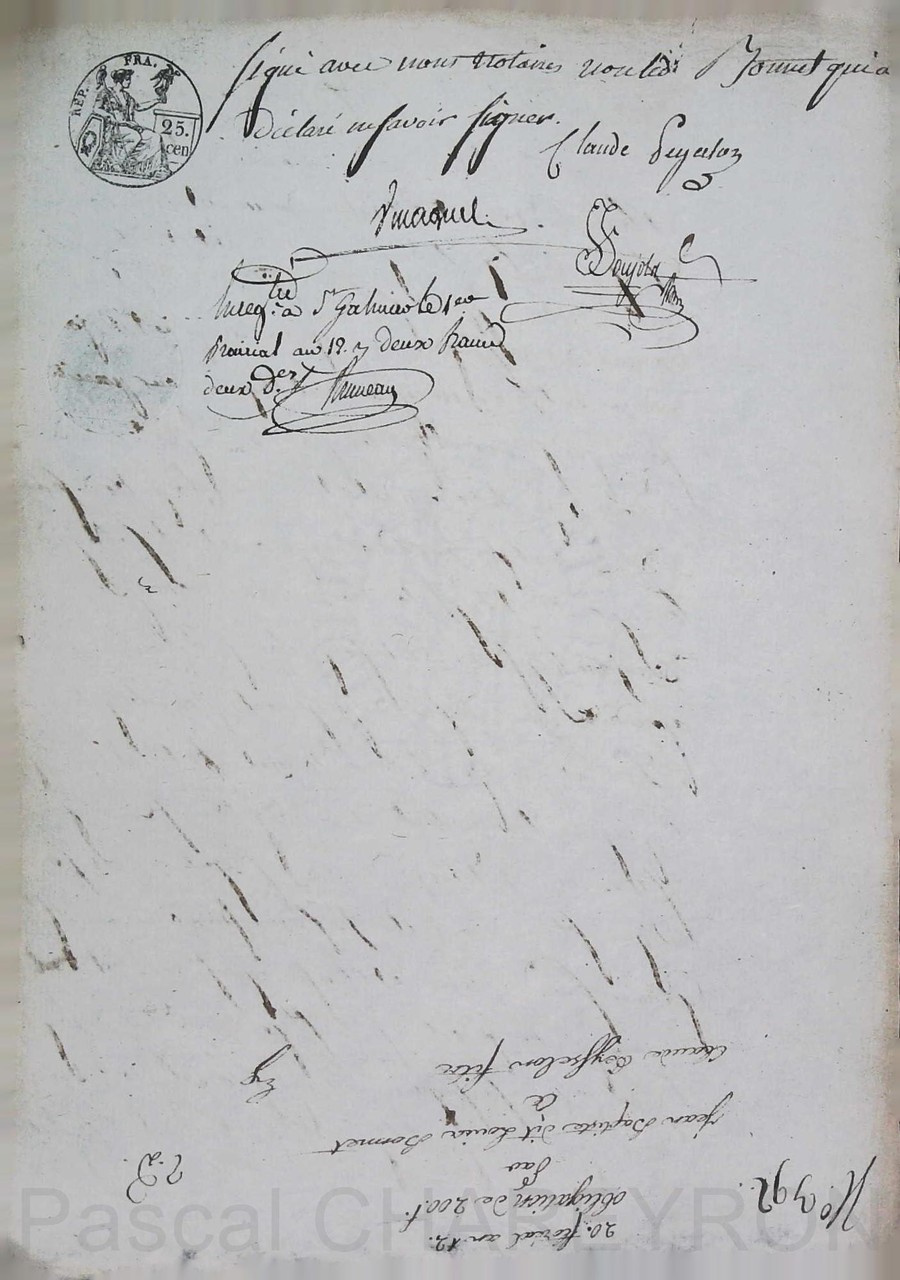 RÉP. FRA.
25.
cen
signé avec nous notaires non ledit Bonnet qui a
déclaré ne savoir signer.
Claude Peyselon
Enreg.tré à St Galmier le 1er
Prairial an 12. deux francs
deux d.es
20. floréal an 12.
obligation de 200 f.
par
Jean Baptiste dit Louis Bonnet
a
Claude Peysselon fils
N.o 392.
Pascal CHAPEYRON